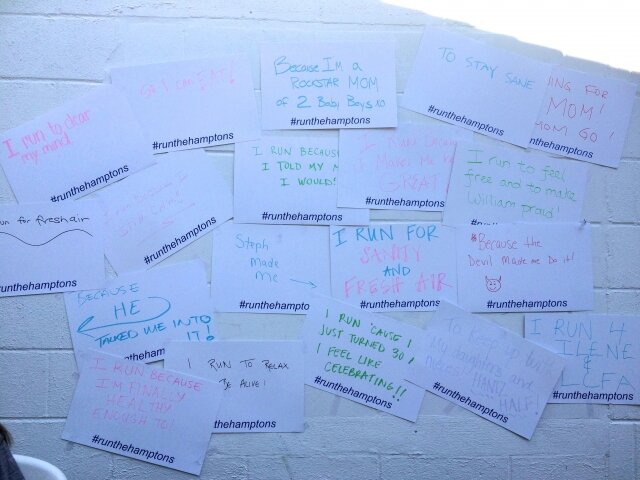 I run to clear
my mind
#runthehamptons
So I can EAT!
#runthehamptons
Because I'm a
ROCKSTAR MOM
of 2 Baby Boys
#runthehamptons
TO STAY SANE
#runthehamptons
ING FOR
MOM!
MOM GO!
#runthehamptons
I RUN BECAUS
I TOLD MY
I WOULD!
#runthehamptons
I Run
it Makes Me
GREAT
#runthehamptons
I run to feel
free and to make
William proud!
#runthehamptons
un for fresh air
#runthehamptons
#runthehamptons
Steph
made
me
#runthehamptons
I RUN FOR
SANITY
AND
FRESH AIR
#runthehamptons
*Because the
Devil made me Do it!
#runthehamptons
BECAUSE
HE
TALKED ME INTO
IT!
#runtheham
I RUN BECAUSE
I'M FINALLY
HEALTHY
ENOUGH TO!
#runthehamptons
I RUN TO RELAX
BE ALIVE!
runthehamptons
I RUN 'CAUSE I
JUST TURNED 30!
I FEEL LIKE
CELEBRATING!!
#runthehamptons
#runthehamptons
I RUN 4
ILENE
&
LCFA
#runthehamptons